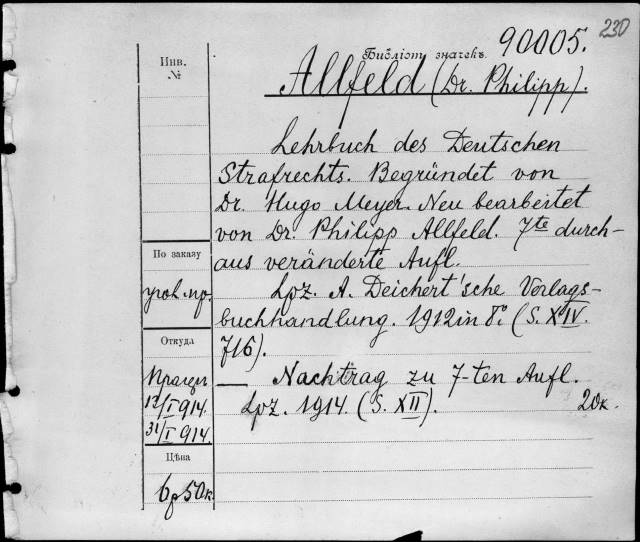 230
Библіот. значекъ 90005.
Allfeld (Dr. Philipp).
Инв.
№
Lehrbuch des Deutschen
Strafrechts. Begründet von
Dr. Hugo Meyer. Neu bearbeitet
von Dr. Philipp Allfeld. 7te durch-
aus veränderte Aufl.
Lpz. A. Deichert'sche Verlags-
buchhandlung. 1912 in 8°. (S. XIV.
716).
— Nachtrag zu 7-ten Aufl.
Lpz. 1914. (S. XII). 20к.
По заказу
угол. пр.
Откуда
12/I 914.
31/I 914.
Цѣна
6р 50к